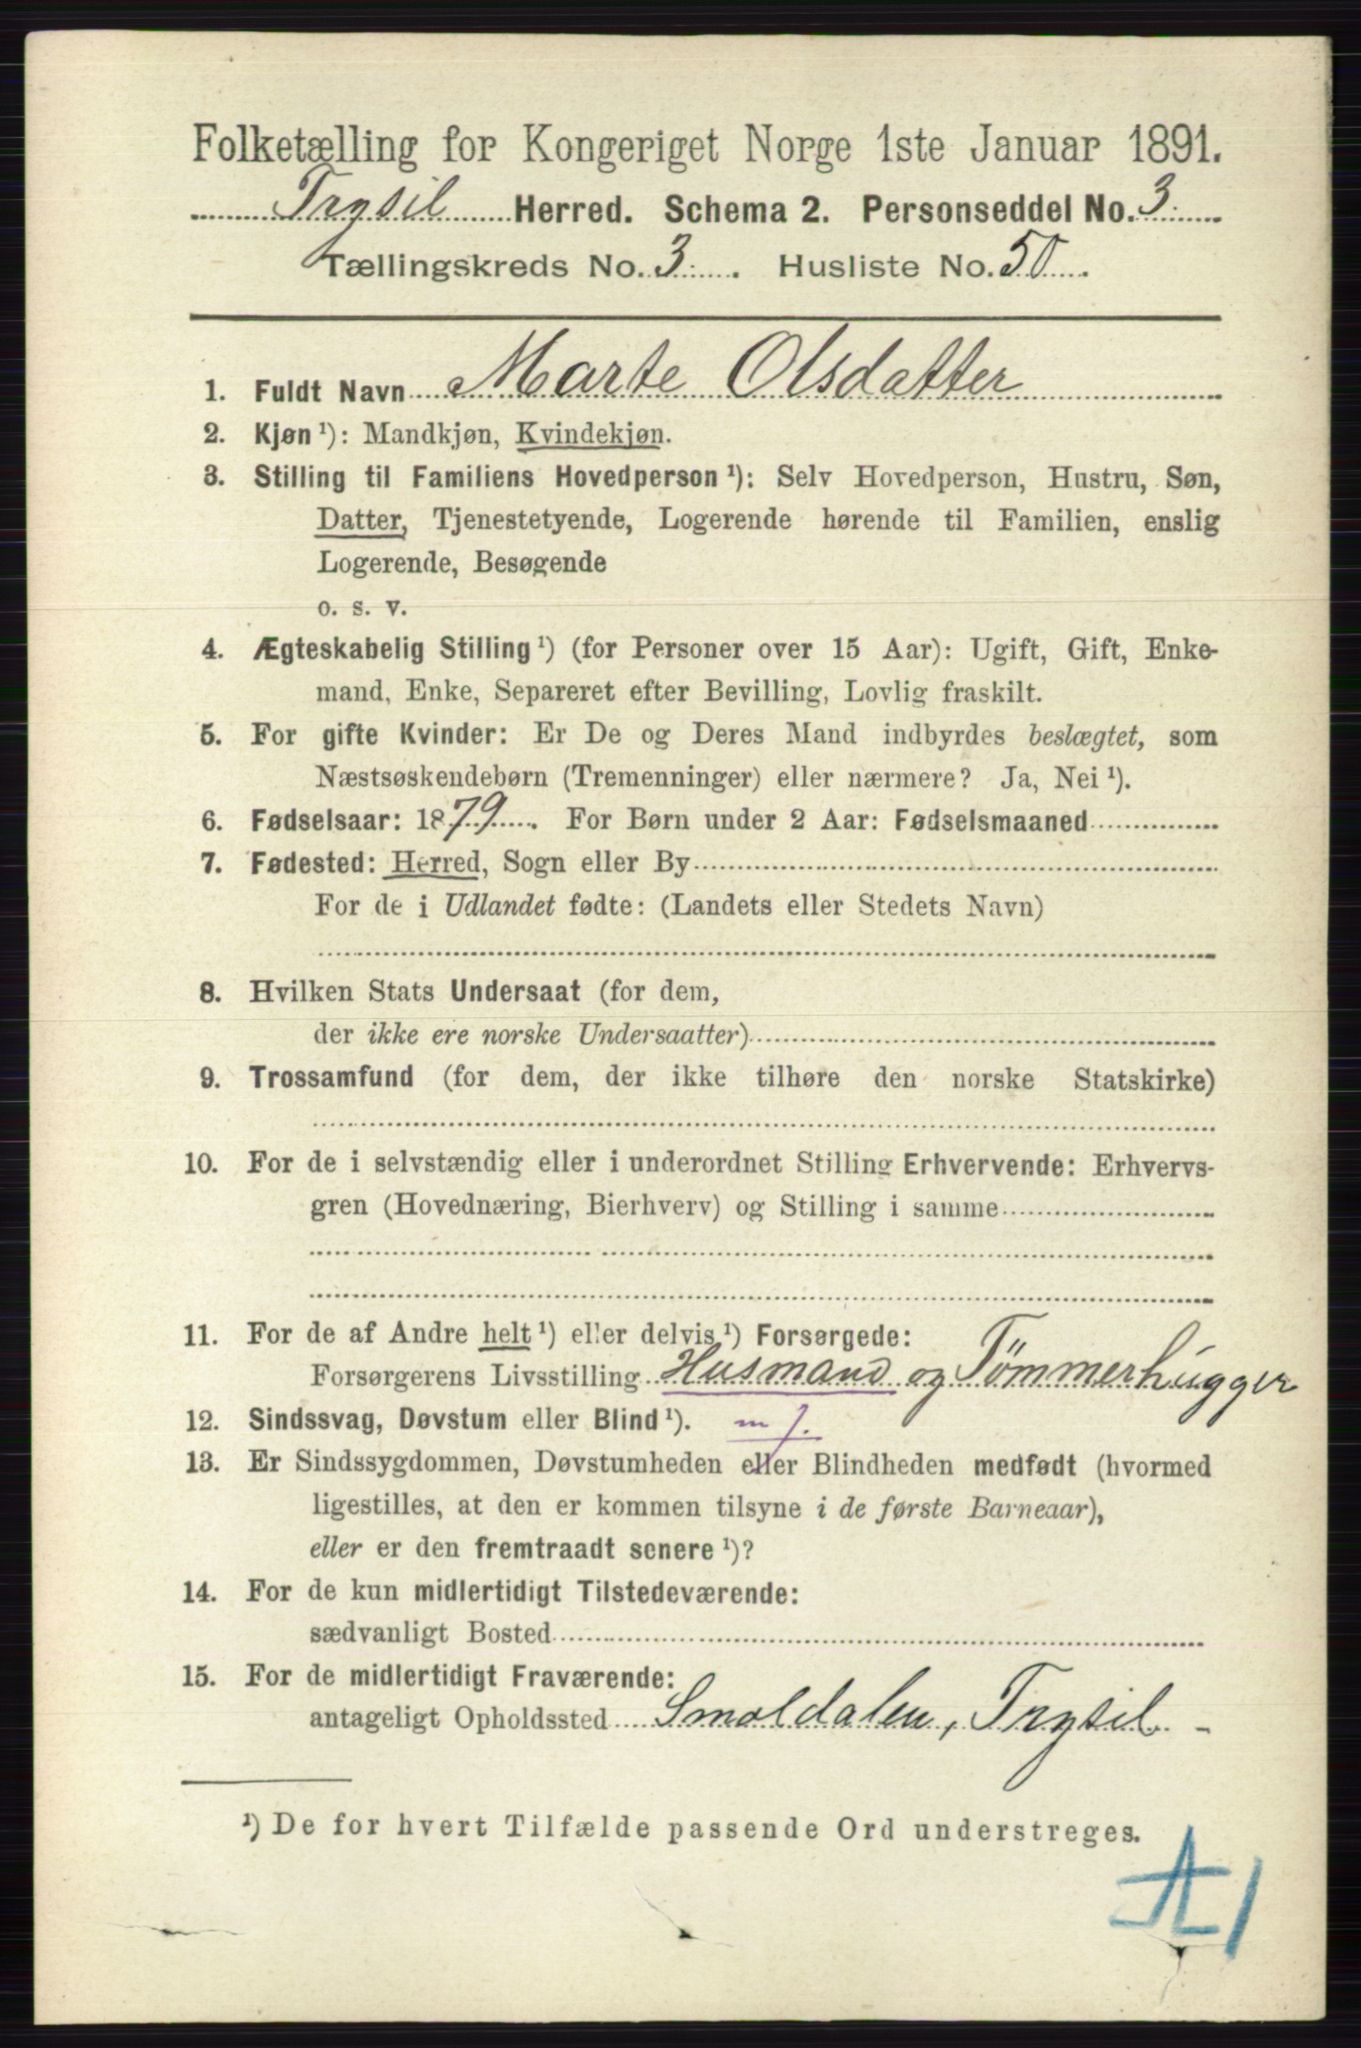 Folketælling for Kongeriget Norge 1ste Januar 1891.
Trysil Herred. Schema 2. Personseddel No. 3
Tællingskreds No. 3. Husliste No. 50.
1. Fuldt Navn Marte Olsdatter
2. Kjøn ¹): Mandkjøn, Kvindekjøn.
3. Stilling til Familiens Hovedperson ¹): Selv Hovedperson, Hustru, Søn,
Datter, Tjenestetyende, Logerende hørende til Familien, enslig
Logerende, Besøgende
o. s. v.
4. Ægteskabelig Stilling ¹) (for Personer over 15 Aar): Ugift, Gift, Enke-
mand, Enke, Separeret efter Bevilling, Lovlig fraskilt.
5. For gifte Kvinder: Er De og Deres Mand indbyrdes beslægtet, som
Næstsøskendebørn (Tremenninger) eller nærmere? Ja, Nei ¹).
6. Fødselsaar: 1879. For Børn under 2 Aar: Fødselsmaaned
7. Fødested: Herred, Sogn eller By
For de i Udlandet fødte: (Landets eller Stedets Navn)
8. Hvilken Stats Undersaat (for dem,
der ikke ere norske Undersaatter)
9. Trossamfund (for dem, der ikke tilhøre den norske Statskirke)
10. For de i selvstændig eller i underordnet Stilling Erhvervende: Erhvervs-
gren (Hovednæring, Bierhverv) og Stilling i samme
11. For de af Andre helt ¹) eller delvis ¹) Forsørgede:
Forsørgerens Livsstilling Husmand og Tömmerhugger
12. Sindssvag, Døvstum eller Blind ¹). m 7.
13. Er Sindssygdommen, Døvstumheden eller Blindheden medfødt (hvormed
ligestilles, at den er kommen tilsyne i de første Barneaar),
eller er den fremtraadt senere ¹)?
14. For de kun midlertidigt Tilstedeværende:
sædvanligt Bosted
15. For de midlertidigt Fraværende:
antageligt Opholdssted Smoldalen, Trysil -
¹) De for hvert Tilfælde passende Ord understreges.